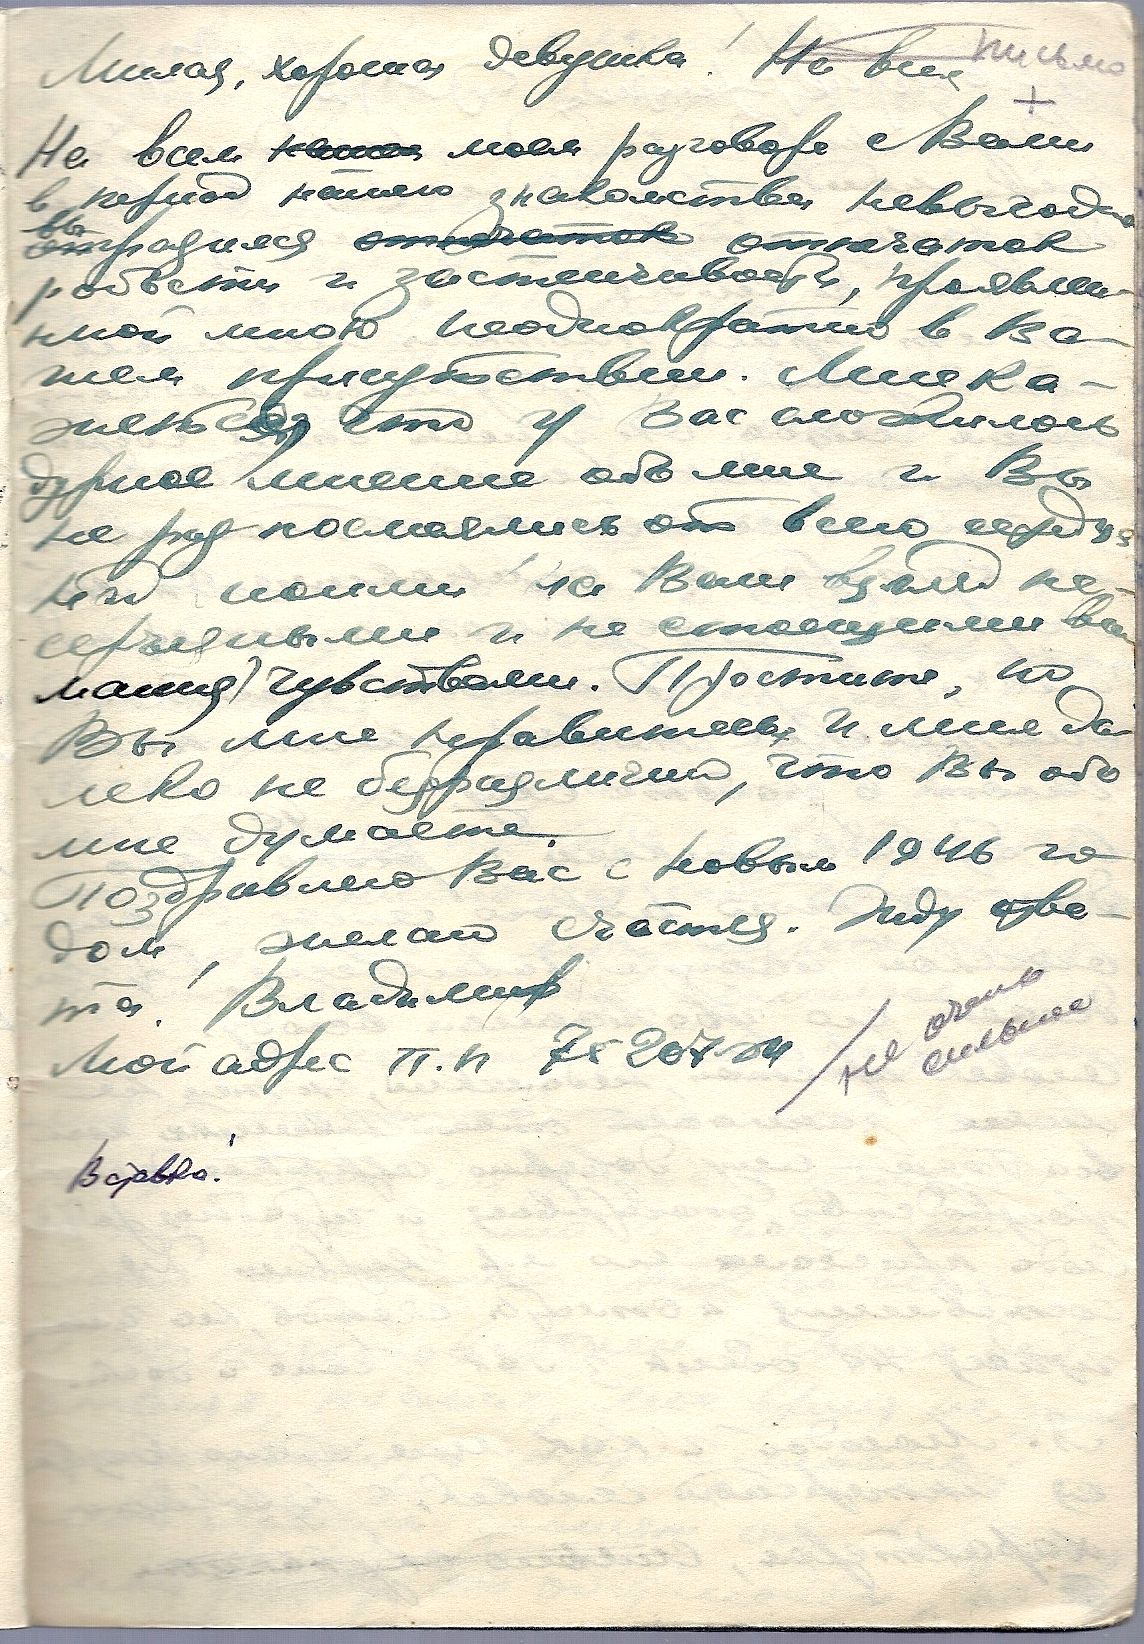 Милая, хорошая девушка! На всем письмо
+
На всем нашем моем разговоре с Вами
в период нашего знакомства невыгодно
вы
отразился отпечаток отпечаток
робости и застенчивости, проявлен-
ной мною неоднократно в Ва-
шем присутствии. Мне ка-
жеться, что у Вас сложилось
дурное мнение обо мне и Вы
не раз посмеялись от всего сердца
над моими на Ваш взгляд не-
серьезными и не стоящими вни
мания чувствами. Простите, но
Вы мне нравитесь и мне да-
леко не безразлично, что Вы обо
мне думаете.
Поздравляю Вас с новым 1946 го-
дом, желаю счастья. Жду отве-
та! Владимир
Мой адрес п.п
не очень
сильное
Вставка!